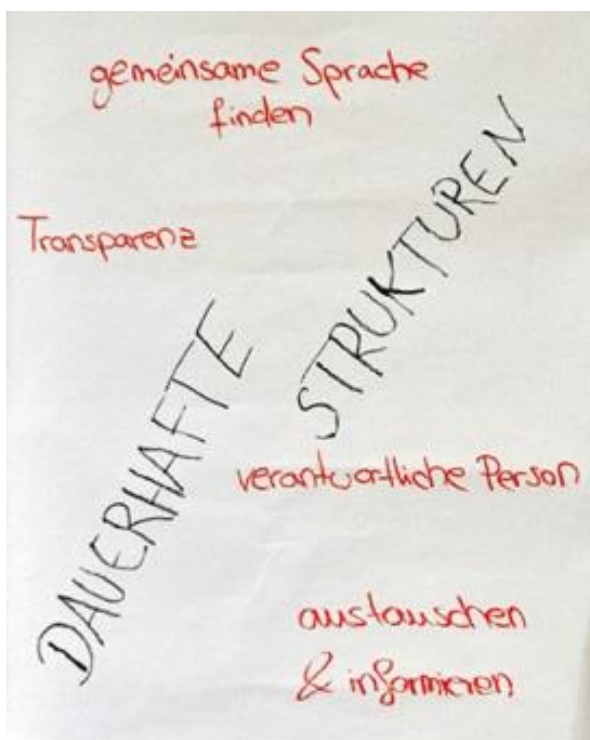 gemeinsame Sprache
finden
Transparenz
DAUERHAFTE
STRUKTUREN
verantwortliche Person
austauschen
& informieren